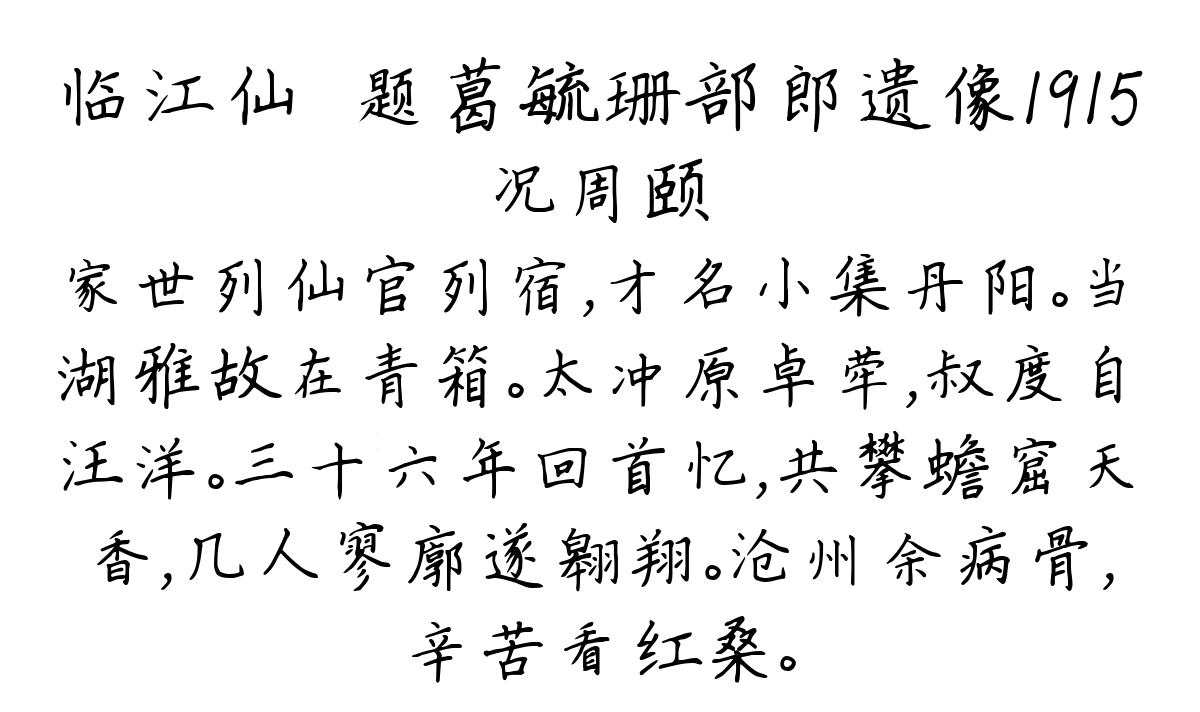 临江仙 题葛毓珊部郎遗像1915
况周颐
家世列仙官列宿,才名小集丹阳。当
湖雅故在青箱。太冲原卓荦,叔度自
汪洋。三十六年回首忆,共攀蟾窟天
香,几人寥廓遂翱翔。沧州余病骨,
辛苦看红桑。